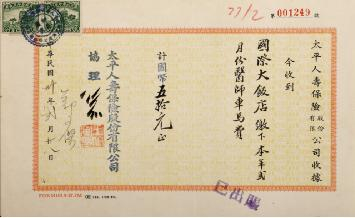 77/2
№ 001249 號
太平人壽保險股份有限公司收據
今收到
國際大飯店繳下本年弍
月份醫師車馬費
計國幣五拾元正
太平人壽保險股份有限公司
協理
中華民國卅年弍月十八日
已出賬